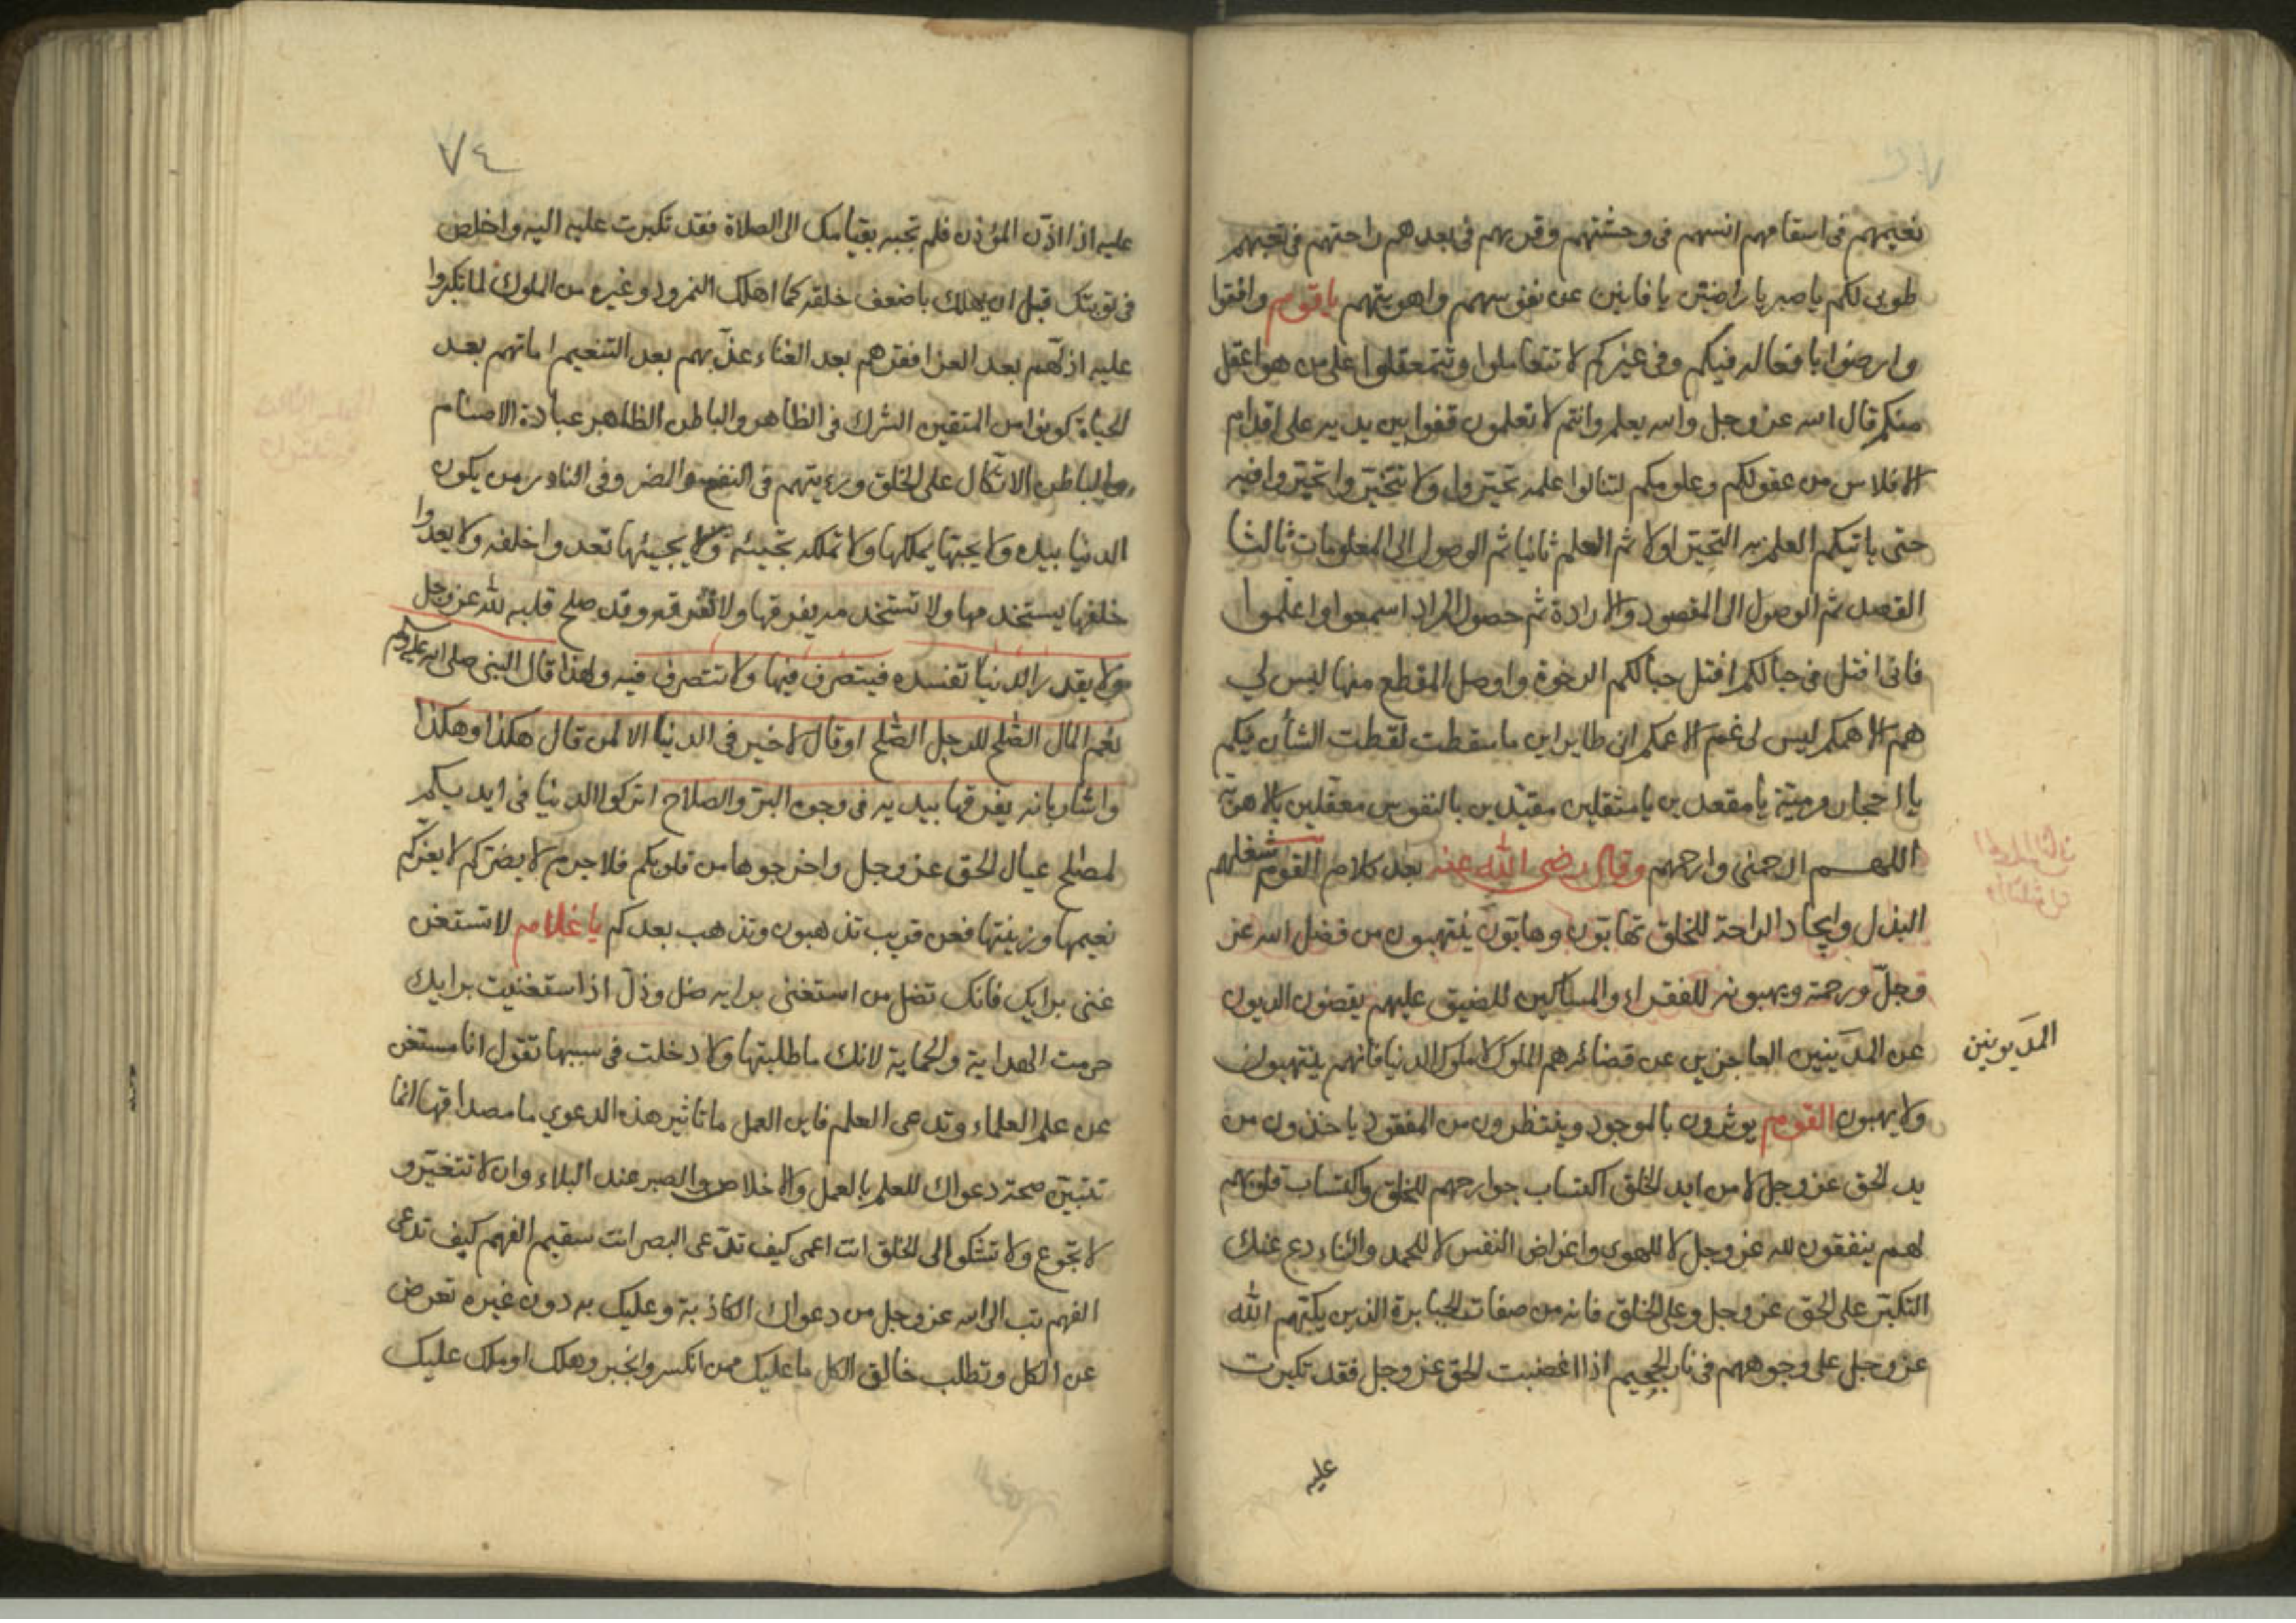 نعيمهم في اسقامهم انسهم في وحشتهم وقربهم في بعدهم راحتهم في تعبهم
طوبى لكم يا صبر يا راضين يا فانين عن نفوسهم واهويتهم يا قوم وافقوا
وارضوا بافعاله فيكم وفي غيركم لا تتعاملوا وتتمعقلوا على من هو اعقل
منكم قال الله عز وجل والله يعلم وانتم لا تعلمون قفوا بين يديه على اقدام
الافلاس من عقولكم وعلومكم لتنالوا علمه تحيروا ولا تتخيروا تحيروا فيه
حتى ياتيكم العلم به التحير اولا ثم العلم ثانيا ثم الوصول الى المعلومات ثالثا
القصد ثم الوصول الى المقصود والارادة ثم حصول المراد اسمعوا واعلموا
فاني افتل في حبالكم افتل حبالكم الرخوة واوصل المقطع منها ليس لي
هم الا همكم ليس لي غم الا غمكم اني طاير اين ما سقطت لقطت الشأن فيكم
يا احجار مرميّة يا مقعدين يا مثقلين مقيّدين بالنفوس معقلين بالاهوية
اللهم ارحمني وارحمهم وقال رضي الله عنه بعد كلام القوم شغلهم
البذل وايجاد الراحة للخلق نهابون وهابون ينتهبون من فضل الله عز
وجلّ ورحمته ويهبونه للفقراء والمساكين للضيق عليهم يقضون الديون
عن المدينين العاجزين عن قضائه هم الملوك لا ملوك الدنيا فانهم ينتهبون
المديونين
ولا يهبون القوم يوثرون بالموجود وينتظرون من المفقود ياخذون من
يد الحق عز وجل لا من ايد الخلق اكتساب جوارحهم للخلق واكتساب قلوبهم
لهم ينفقون لله عز وجل لا للهوى واغراض النفس لا للحمد والثناء دع عنك
التكبر على الحق عز وجل وعلى الخلق فانه من صفات الجبابرة الذين يكبهم الله
عز وجل على وجوههم في نار الجحيم اذا اغضبت الحق عز وجل فقد تكبرت
عليه
٧٤
عليه اذا اذّن المؤذن فلم تجبه بقيامك الى الصلاة فقد تكبرت عليه اليه واخلص
في توبتك قبل ان يهلك باضعف خلقه كما اهلك النمرود وغيره من الملوك لما تكبروا
عليه اذلّهم بعد العز افقرهم بعد الغناء عذّبهم بعد التنعيم اماتهم بعد
الحياة كونوا من المتقين الشرك في الظاهر والباطن الظاهر عبادة الاصنام
والباطن الاتكال على الخلق ورؤيتهم في النفع والضر وفي النادر من يكون
الدنيا بيده ولا يحبها يملكها ولا تملكه تحبه ولا يحبها تعدوا خلفه ولا يعدوا
خلفها يستخدمها ولا تستخدمه يفرقها ولا تفرقه وقد صلح قلبه لله عز وجل
ولا يقدر الدنيا تفسده فيتصرف فيها ولا تتصرف فيه ولهذا قال النبي صلى الله عليه وسلم
نعم المال الصالح للرجل الصالح او قال لا خير في الدنيا الا لمن قال هكذا وهكذا
واشار بانه يفرقها بيديه في وجوه البرّ والصلاح اتركوا الدنيا في ايديكم
لمصلح عيال الحق عز وجل واخرجوها من قلوبكم فلا جرم لا يضركم لا يغركم
نعيمها وزينتها فعن قريب تذهبون وتذهب بعدكم يا غلام لا تستغن
عني برايك فانك تضل من استغنى برايه ضل وذلّ اذا استغنيت برايك
حرمت الهداية والحماية لانك ما طلبتها ولا دخلت في سببها تقول انا مستغن
عن علم العلماء وتدعي العلم فاين العمل ما تاثير هذه الدعوى ما مصداقها انما
تتبيّن صحة دعواك للعلم بالعمل والاخلاص والصبر عند البلاء وان لا تتغيّر و
لا تجوع ولا تشكوا الى الخلق انت اعمى كيف تدّعي البصر انت سقيم الفهم كيف تدعي
الفهم تب الى الله عز وجل من دعواك الكاذبة وعليك به دون غيره تعرض
عن الكل وتطلب خالق الكل ما عليك ممن انكسر وانجبر وهلك او ملك عليك